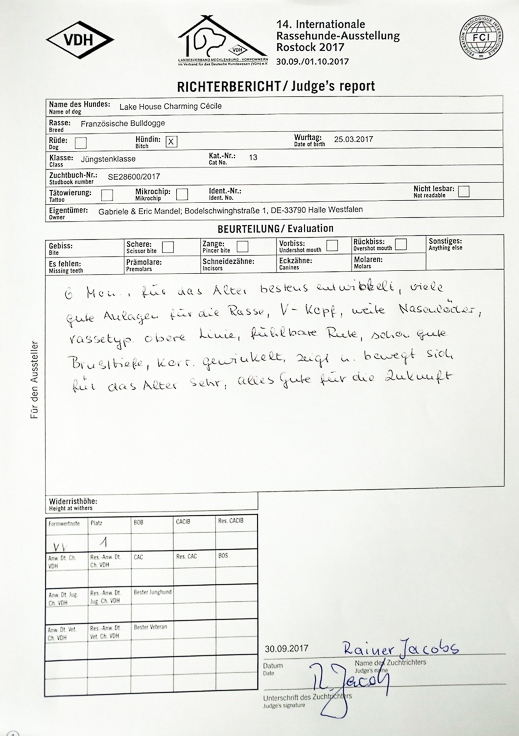 VDH
14. Internationale
Rassehunde-Ausstellung
Rostock 2017
30.09./01.10.2017
LANDESVERBAND MECKLENBURG - VORPOMMERN
im Verband für das Deutsche Hundewesen (VDH) e.V.
FCI
RICHTERBERICHT/Judge's report
Name des Hundes: Lake House Charming Cécile
Name of dog
Rasse: Französische Bulldogge
Breed
Rüde: Hündin: X Wurftag: 25.03.2017
Dog Bitch Date of birth
Klasse: Jüngstenklasse Kat.-Nr.: 13
Class Cat No.
Zuchtbuch-Nr.: SE28600/2017
Studbook number
Tätowierung: Mikrochip: Ident.-Nr.: Nicht lesbar:
Tattoo Mikrochip Ident. No. Not readable
Eigentümer: Gabriele & Eric Mandel; Bodelschwinghstraße 1, DE-33790 Halle Westfalen
Owner
BEURTEILUNG/Evaluation
Gebiss: Schere: Zange: Vorbiss: Rückbiss: Sonstiges:
Bite Scissor bite Pincer bite Undershot mouth Overshot mouth Anything else
Es fehlen: Prämolare: Schneidezähne: Eckzähne: Molaren:
Missing teeth Premolars Incisors Canines Molars
6 Mon., für das Alter bestens entwickelt, viele
gute Anlagen für die Rasse, V-Kopf, weite Nasenlöcher,
rassetyp. obere Linie, fühlbare Rute, schon gute
Brusttiefe, korr. gewinkelt, zeigt u. bewegt sich
für das Alter sehr, alles Gute für die Zukunft
Für den Aussteller
Widerristhöhe:
Height at withers
Formwertnote Platz BOB CACIB Res. CACIB
vv 1
Anw. Dt. Ch. VDH Res.-Anw. Dt. Ch. VDH CAC Res. CAC BOS
Anw. Dt. Jug. Ch. VDH Res.-Anw. Dt. Jug. Ch. VDH Bester Junghund
Anw. Dt. Vet. Ch. VDH Res.-Anw. Dt. Vet. Ch. VDH Bester Veteran
30.09.2017 Rainer Jacobs
Datum Name des Zuchtrichters
Date Judge's name
R. Jacobs
Unterschrift des Zuchtrichters
Judge's signature